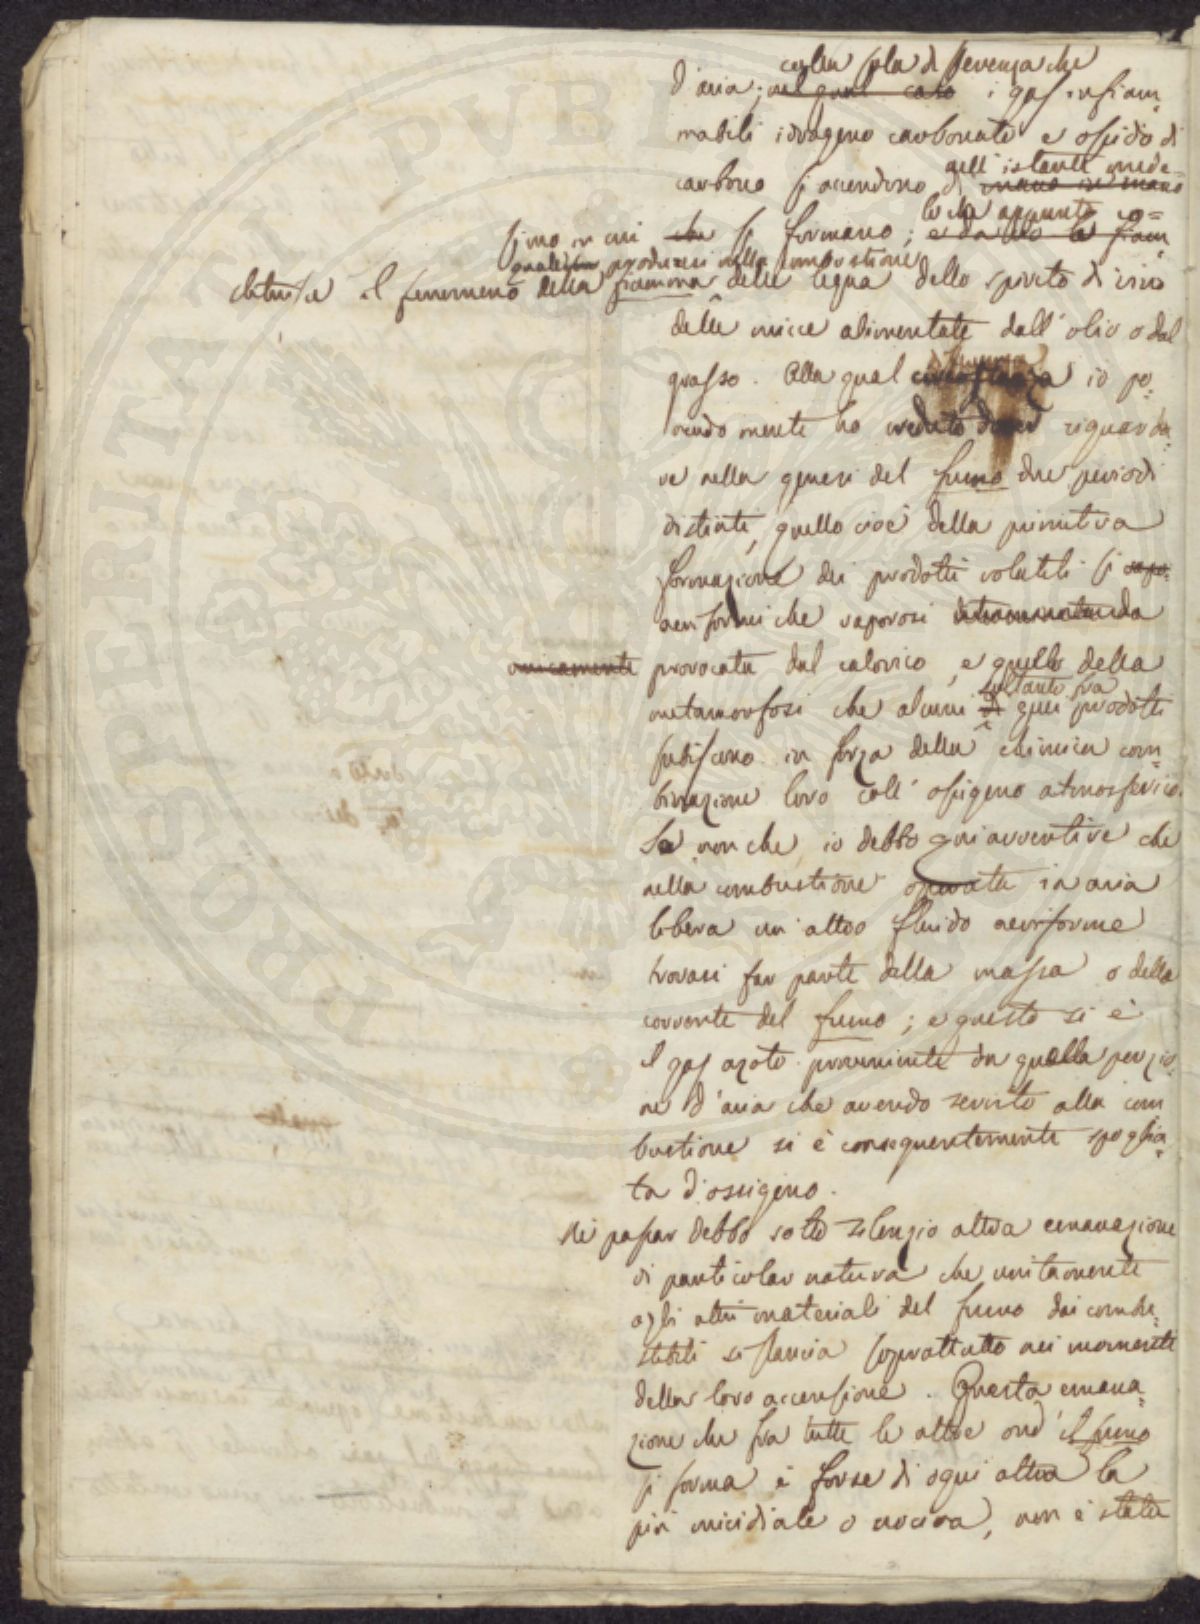 colla sola differenza che
d'aria; nel qual caso i gas infiam=
mabili idrogeno carbonato e ossido di
nell'istante mede=
carbono si accendono di mano in mano
lo che appunto co=
simo in cui che si formano; e danno la fiam
prodursi nella combustione
stituisce il fenomeno della fiamma delle legna dello spirito di vino
delle micce alimentate dall'olio o dal
grasso. Alla qual circostanza io po=
nendo mente ho creduto dover riguarda=
re nella genesi del fumo due periodi
distinti, quello cioè della primitiva
formazione dei prodotti volatili sì vapo=
aeriformi che vaporosi
unicamente provocata dal calorico, e quello della
soltanto fra
metamorfosi che alcuni di quei prodotti
subiscono in forza della chimica com=
binazione loro coll'ossigeno atmosferico.
Se non che io debbo qui avvertire che
nella combustione operata in aria
libera un altro fluido aeriforme
trovasi far parte della massa o della
corrente del fumo; e questo si è
il gas azoto proveniente da quella porzio=
ne d'aria che avendo servito alla com
bustione si è conseguentemente spoglia=
ta d'ossigeno.
Nè passar debbo sotto silenzio altra emanazione
di particolar natura che unitamente
agli altri materiali del fumo dai combu=
stibili si slancia soprattutto nei momenti
della loro accensione. Questa emana=
zione che fra tutte le altre ond'il fumo
si forma è forse di ogni altra la
più micidiale o nociva, non è stata